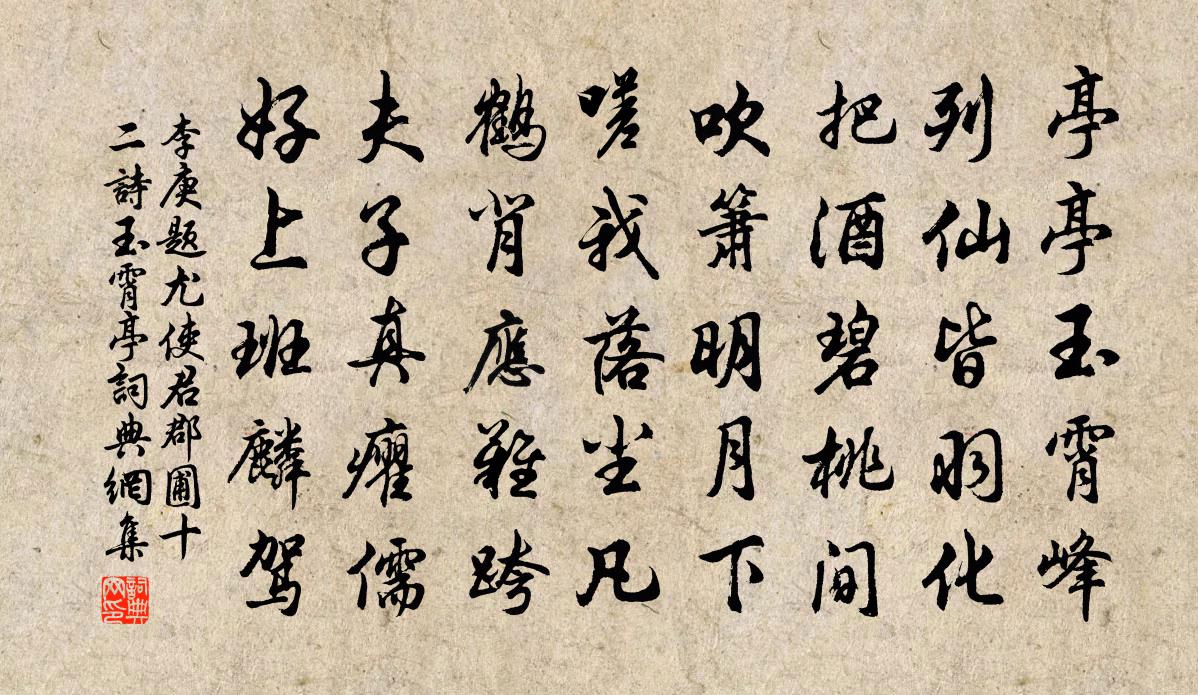 亭亭玉霄峰
列仙皆羽化
把酒碧桃間
吹簫明月下
嗟我落尘凡
鶴背應難跨
夫子真癯儒
好上班麟駕
李庚題尤使君郡圃十
二詩玉霄亭詞典網集
詞典
网印